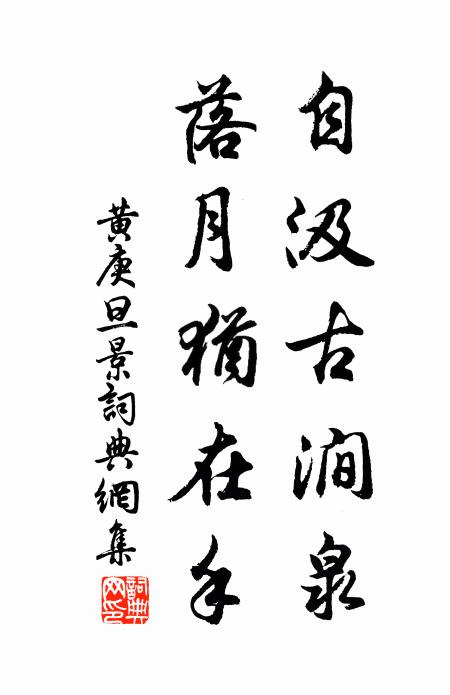 自汲古澗泉
落月猶在手
黄庚旦景詞典網集
詞典網印